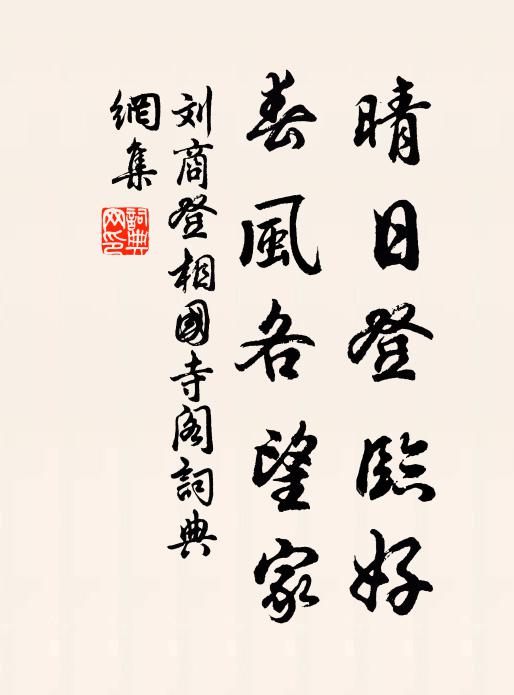 晴日登臨好
春風各望家
刘商登相國寺阁詞典
網集
詞典网印